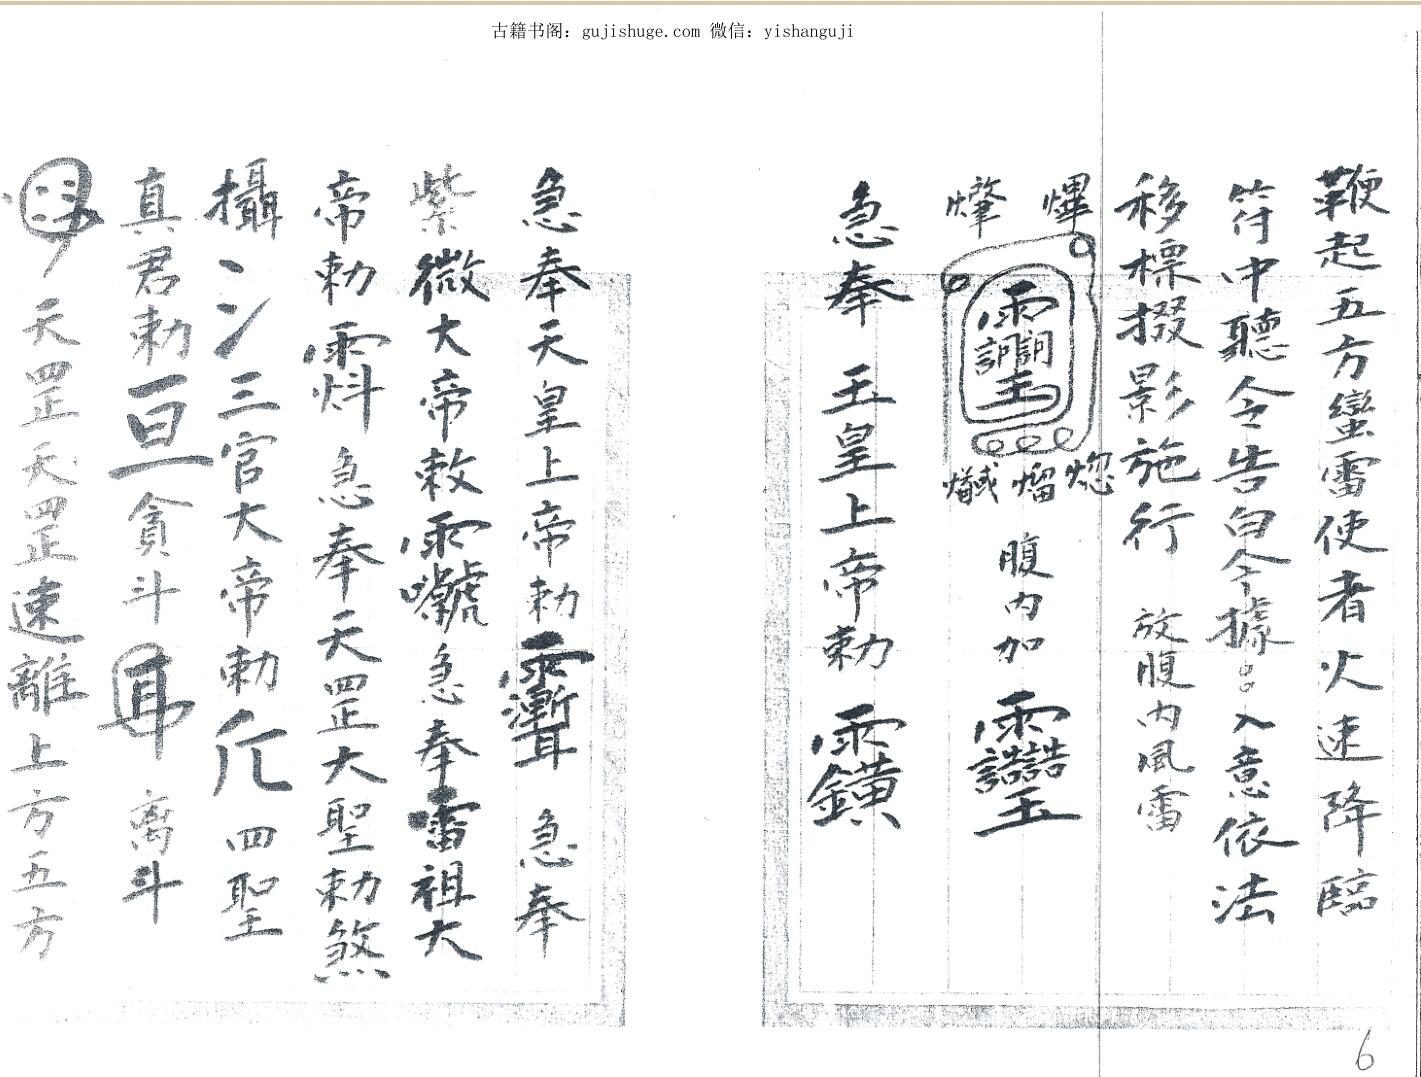 古籍书阁：gujishuge.com 微信：yishanguji
鞭起五方蠻雷使者火速降臨
符中聽令告白今據 入意依法
移標掇影施行 放腹内風雷
燁
腹内加
急奉 玉皇上帝勅
急奉天皇上帝勅 急奉
紫微大帝敕 急奉雷祖大
帝勅 急奉天罡大聖勅煞
攝 三官大帝勅 四聖
真君勅 貪斗 离斗
天罡天罡速離上方五方
6